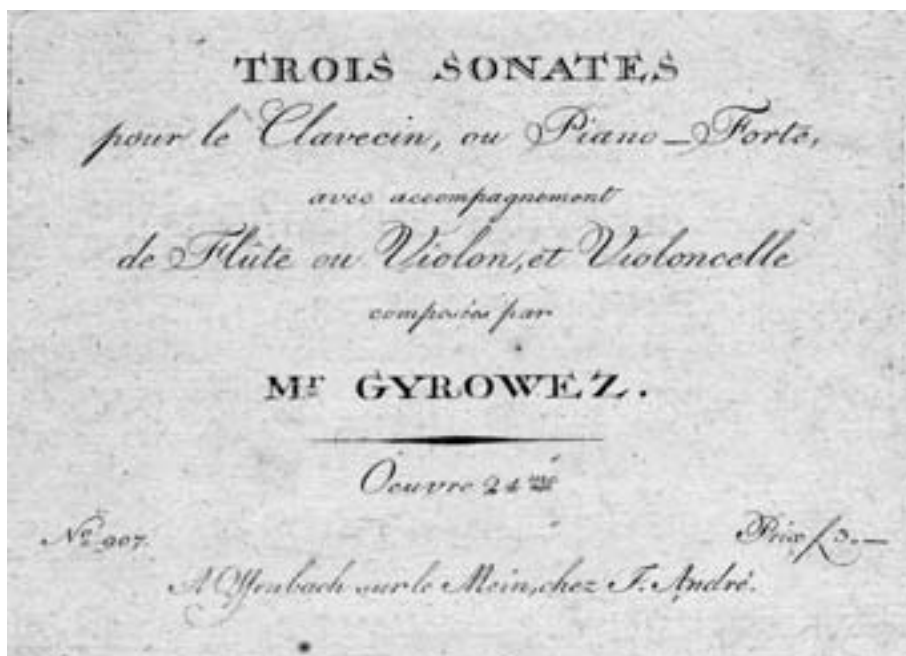 TROIS SONATES
pour le Clavecin, ou Piano-Forte,
avec accompagnement
de Flûte ou Violon, et Violoncelle
composées par
Mr GYROWEZ.
Oeuvre 24me
No 907. Prix f 3.—
A Offenbach sur le Mein, chez J. André.